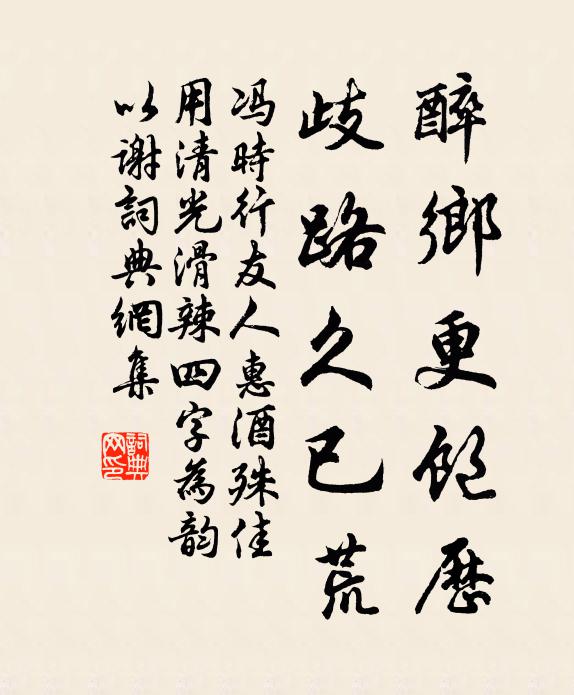 醉鄉更飽歷
歧路久已荒
冯時行友人惠酒殊佳
用清光滑辣四字為韵
以谢詞典網集
詞典網印